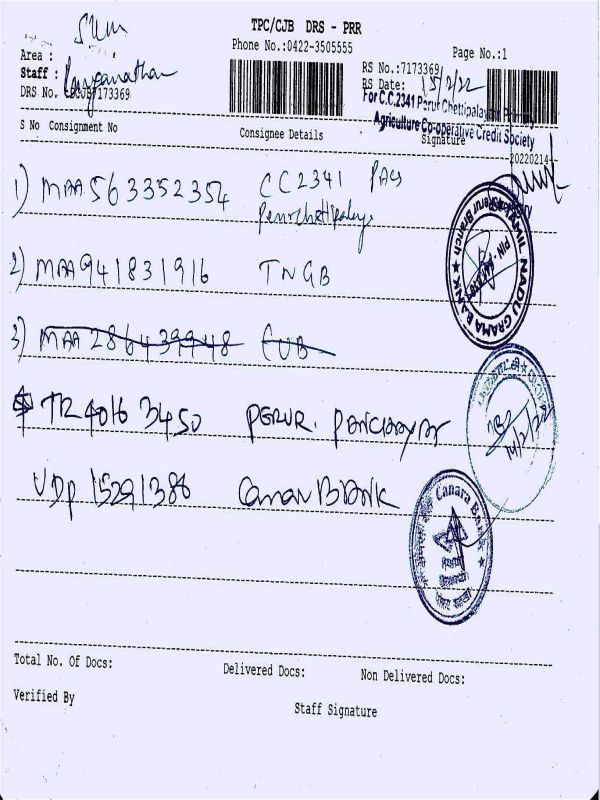 TPC/CJB DRS - PRR
Phone No.:0422-3505555
Page No.:1
Area :
Staff :
RS No.:7173369
RS Date: 15/2/22
DRS No. 7173369
For C.C.2341 Perur Chettipalayam Primary
Agriculture Co-operative Credit Society
S No Consignment No Consignee Details Signature
20220214
1) MAA563352354 CC2341 PACS
2) MAA941831916 TNGB
TAMIL NADU GRAMA BANK ★ Perur Branch ★
3) MAA 286439948 CUB
TR 4016 3450 PERUR.
14/2/22
UDP 15291386
Canara Bank
Total No. Of Docs: Delivered Docs: Non Delivered Docs:
Verified By Staff Signature